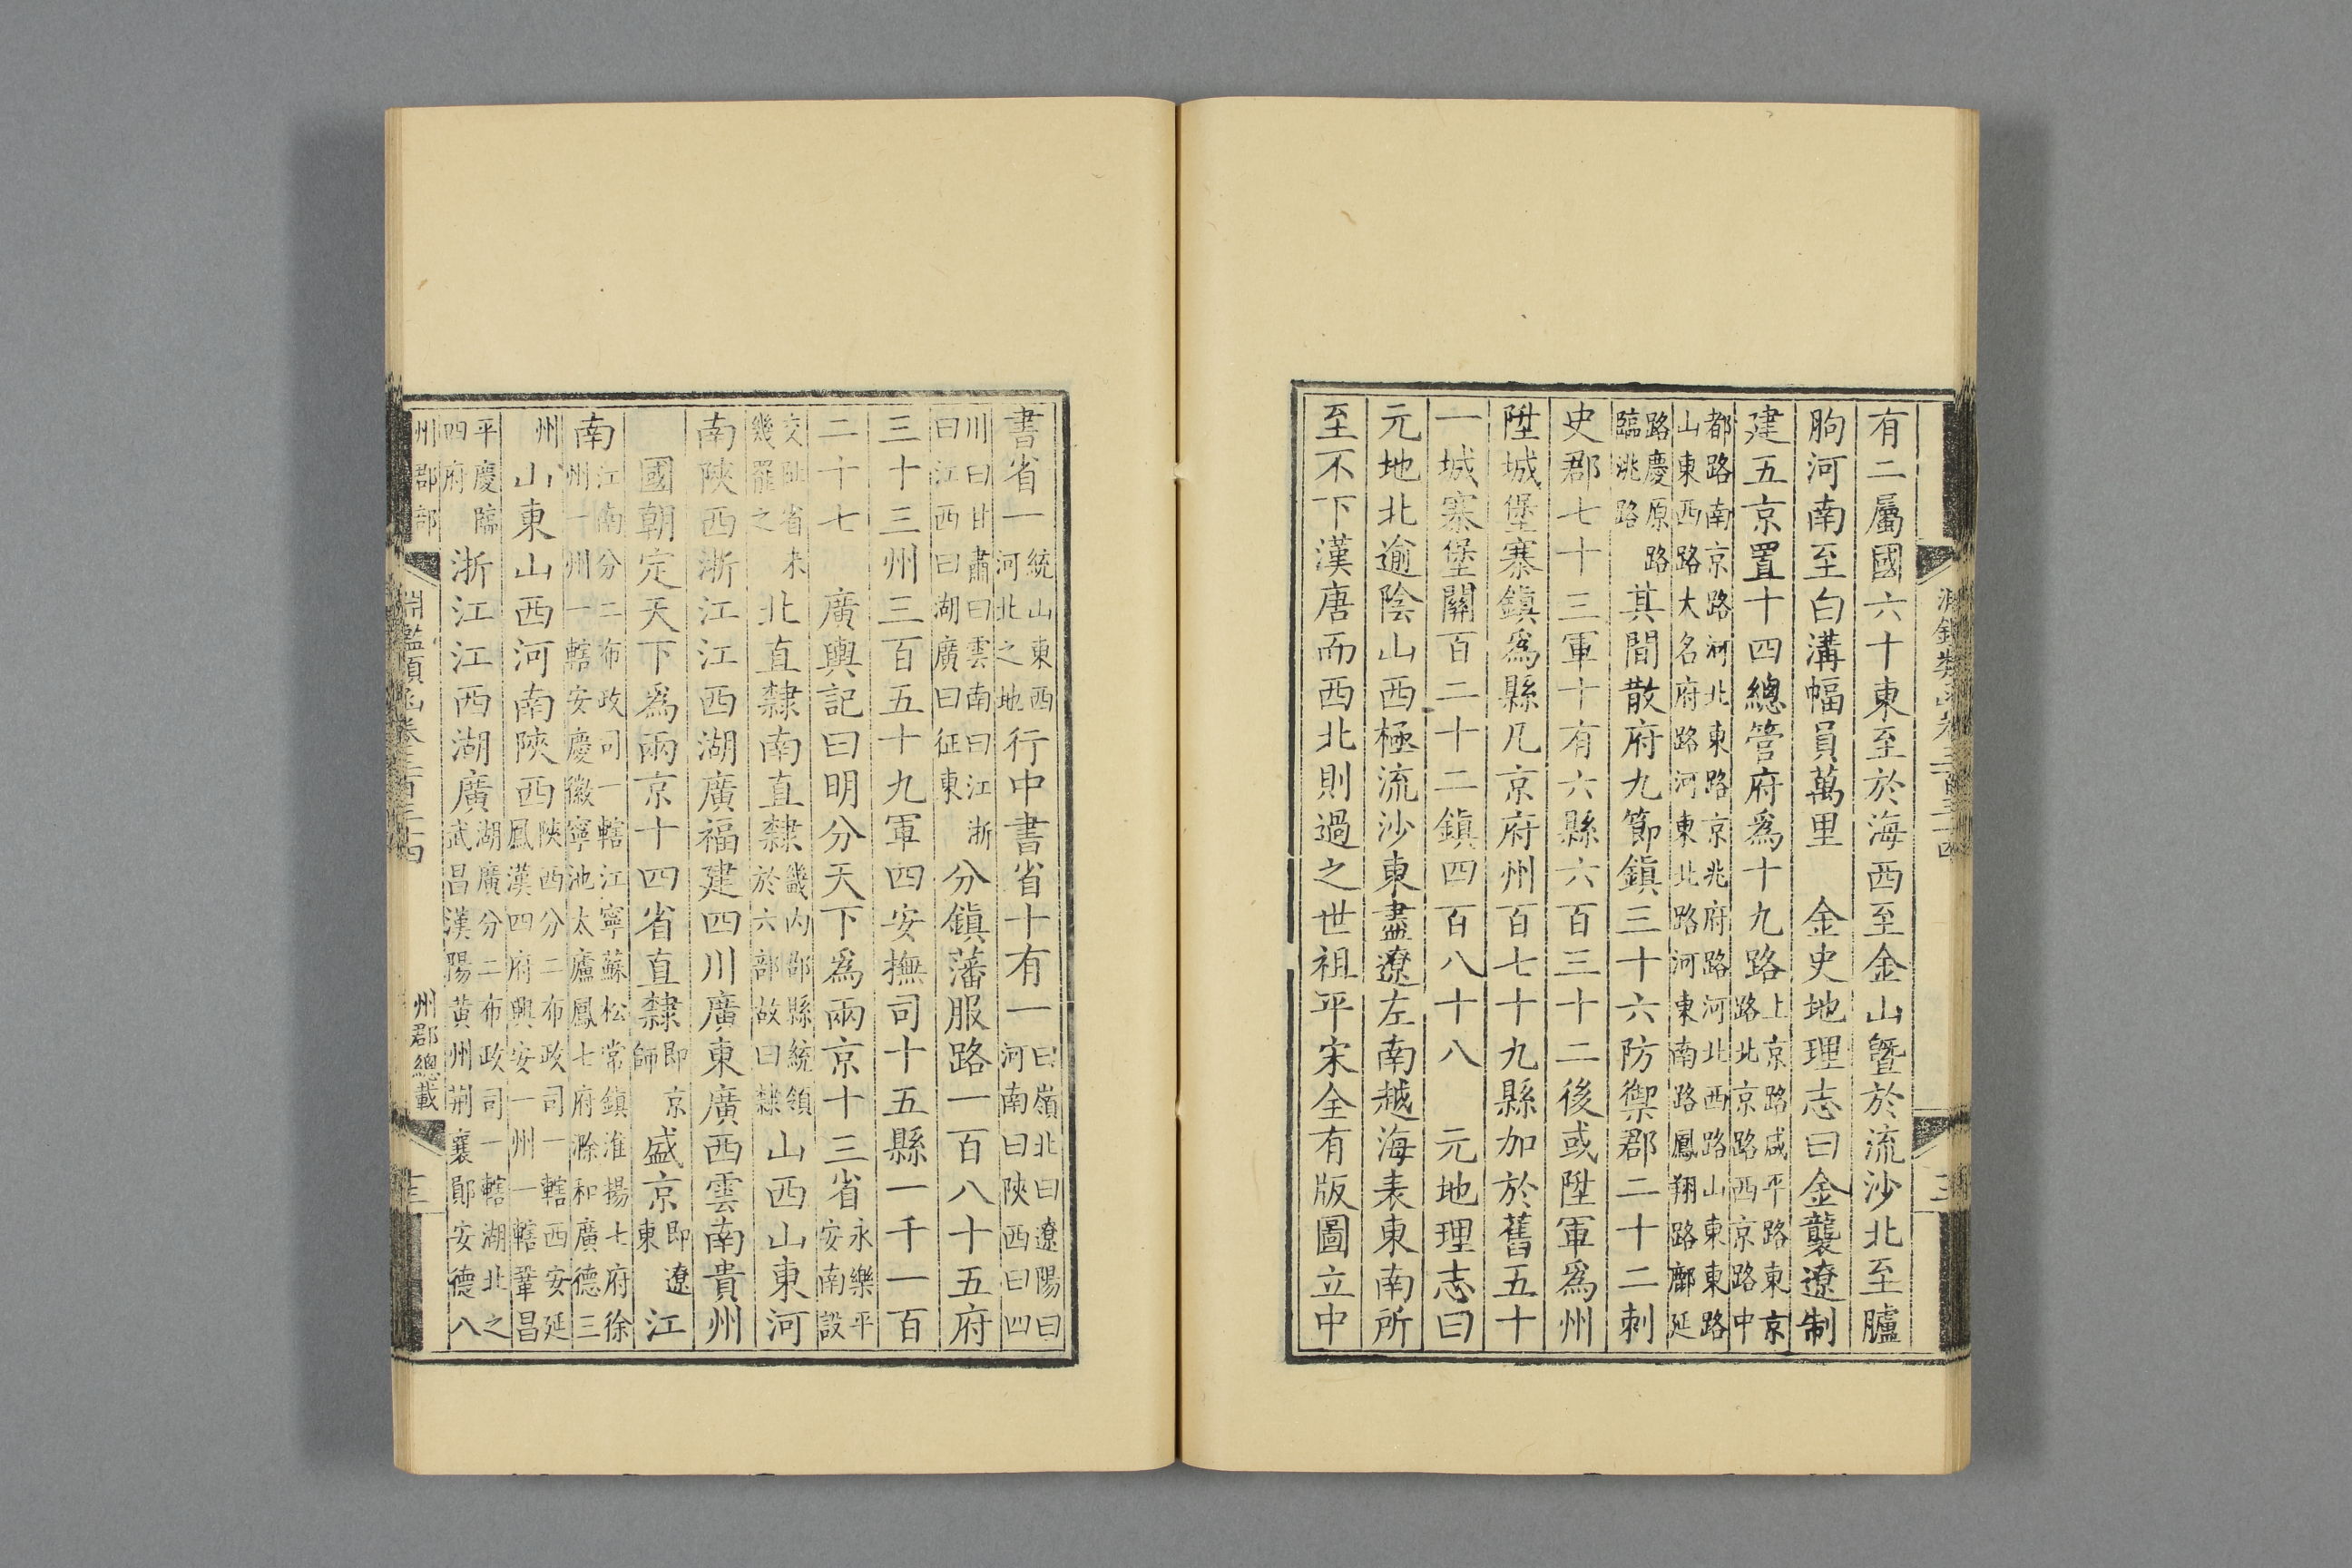 有二屬國六十東至於海西至金山曁於流沙北至臚
朐河南至白溝幅員萬里　金史地理志曰金襲遼制
建五京置十四總管府爲十九路上京路咸平路東京
路北京路西京路中
都路南京路河北東路京兆府路河北西路山東東路
山東西路大名府路河東北路河東南路鳳翔路鄜延
路慶原路
臨洮路其間散府九節鎮三十六防禦郡二十二刺
史郡七十三軍十有六縣六百三十二後或陞軍爲州
陞城堡寨鎮爲縣凡京府州百七十九縣加於舊五十
一城寨堡關百二十二鎮四百八十八　元地理志曰
元地北逾陰山西極流沙東盡遼左南越海表東南所
至不下漢唐而西北則過之世祖平宋全有版圖立中
書省一統山東西
河北之地行中書省十有一曰嶺北曰遼陽曰
河南曰陝西曰四
川曰甘肅曰雲南曰江浙
曰江西曰湖廣曰征東分鎮藩服路一百八十五府
三十三州三百五十九軍四安撫司十五縣一千一百
二十七　廣輿記曰明分天下爲兩京十三省永樂平
安南設
交阯省未
幾罷之北直隸南直隸畿内郡縣統領
於六部故曰隸山西山東河
南陝西浙江江西湖廣福建四川廣東廣西雲南貴州
國朝定天下爲兩京十四省直隸即京
師盛京即遼
東江
南江南分二布政司一轄江寧蘇松常鎮淮揚七府徐
州一州一轄安慶徽寧池太廬鳳七府滁和廣德三
州山東山西河南陝西陝西分二布政司一轄西安延
鳳漢四府興安一州一轄鞏昌
平慶臨
四府浙江江西湖廣湖廣分二布政司一轄湖北之
武昌漢陽黄州荆襄鄖安德八
州郡部　淵鑑類函卷三百三十四　州郡總載　三